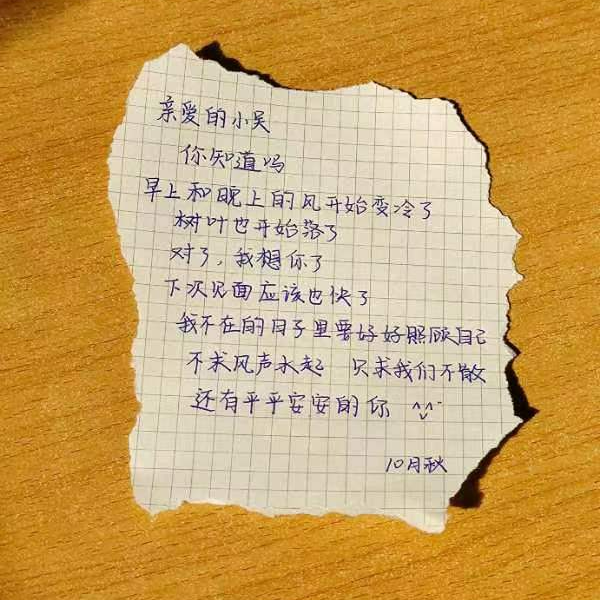 亲爱的小吴
你知道吗
早上和晚上的风开始变冷了
树叶也开始落了
对了,我想你了
下次见面应该也快了
我不在的日子里要好好照顾自己
不求风声水起 只求我们不散
还有平平安安的你 ^v^
10月秋